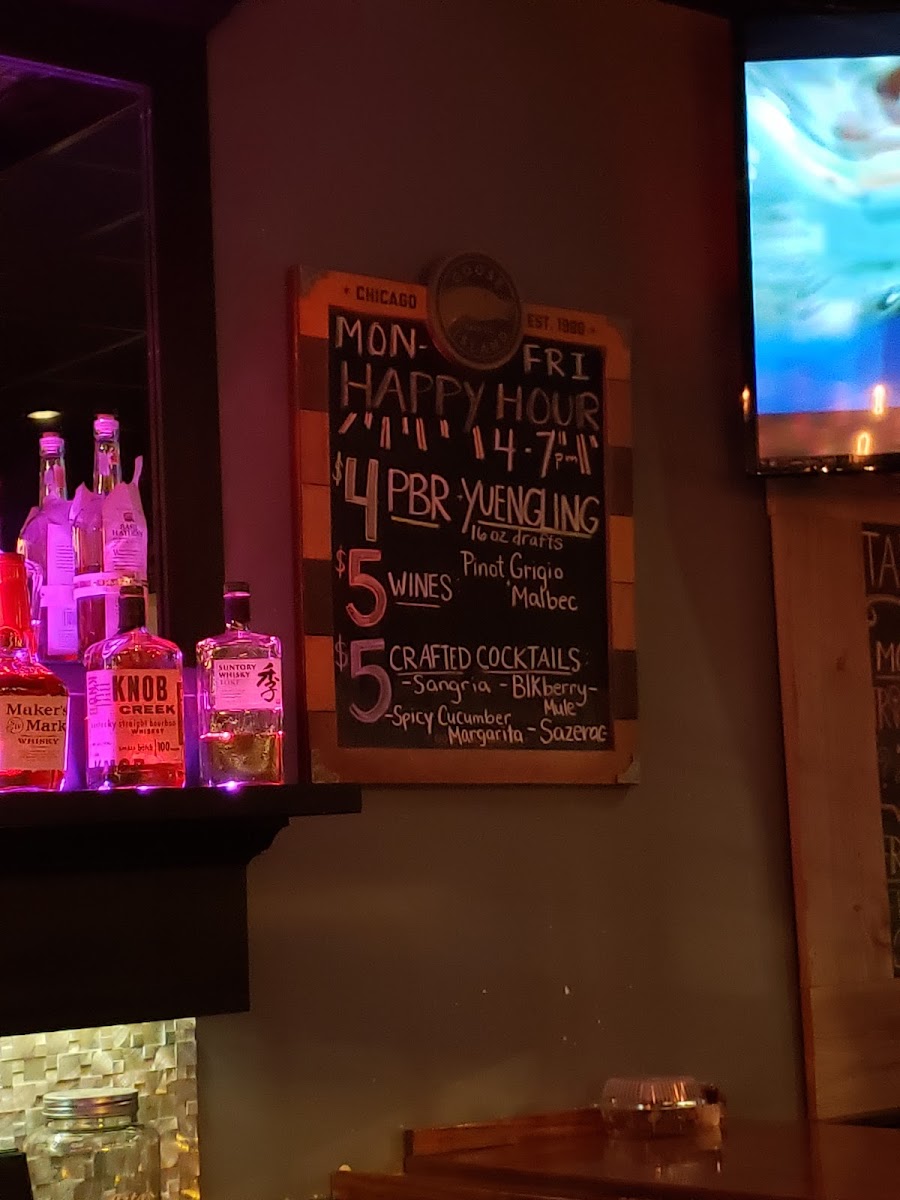 CHICAGO
GOOSE
ISLAND
EST. 1988
MON-
FRI
HAPPY HOUR
4-7pm
$4 PBR + YUENGLING
16 oz drafts
$5 WINES: Pinot Grigio
Malbec
$5 CRAFTED COCKTAILS:
-Sangria - Blkberry-
Mule
-Spicy Cucumber
Margarita - Sazerac
BASIL
HAYDEN
Maker's
Mark
WHISKY
KNOB
CREEK
kentucky straight bourbon
WHISKEY
small batch 100
KNOB
SUNTORY
WHISKY
TOKI
季
TA